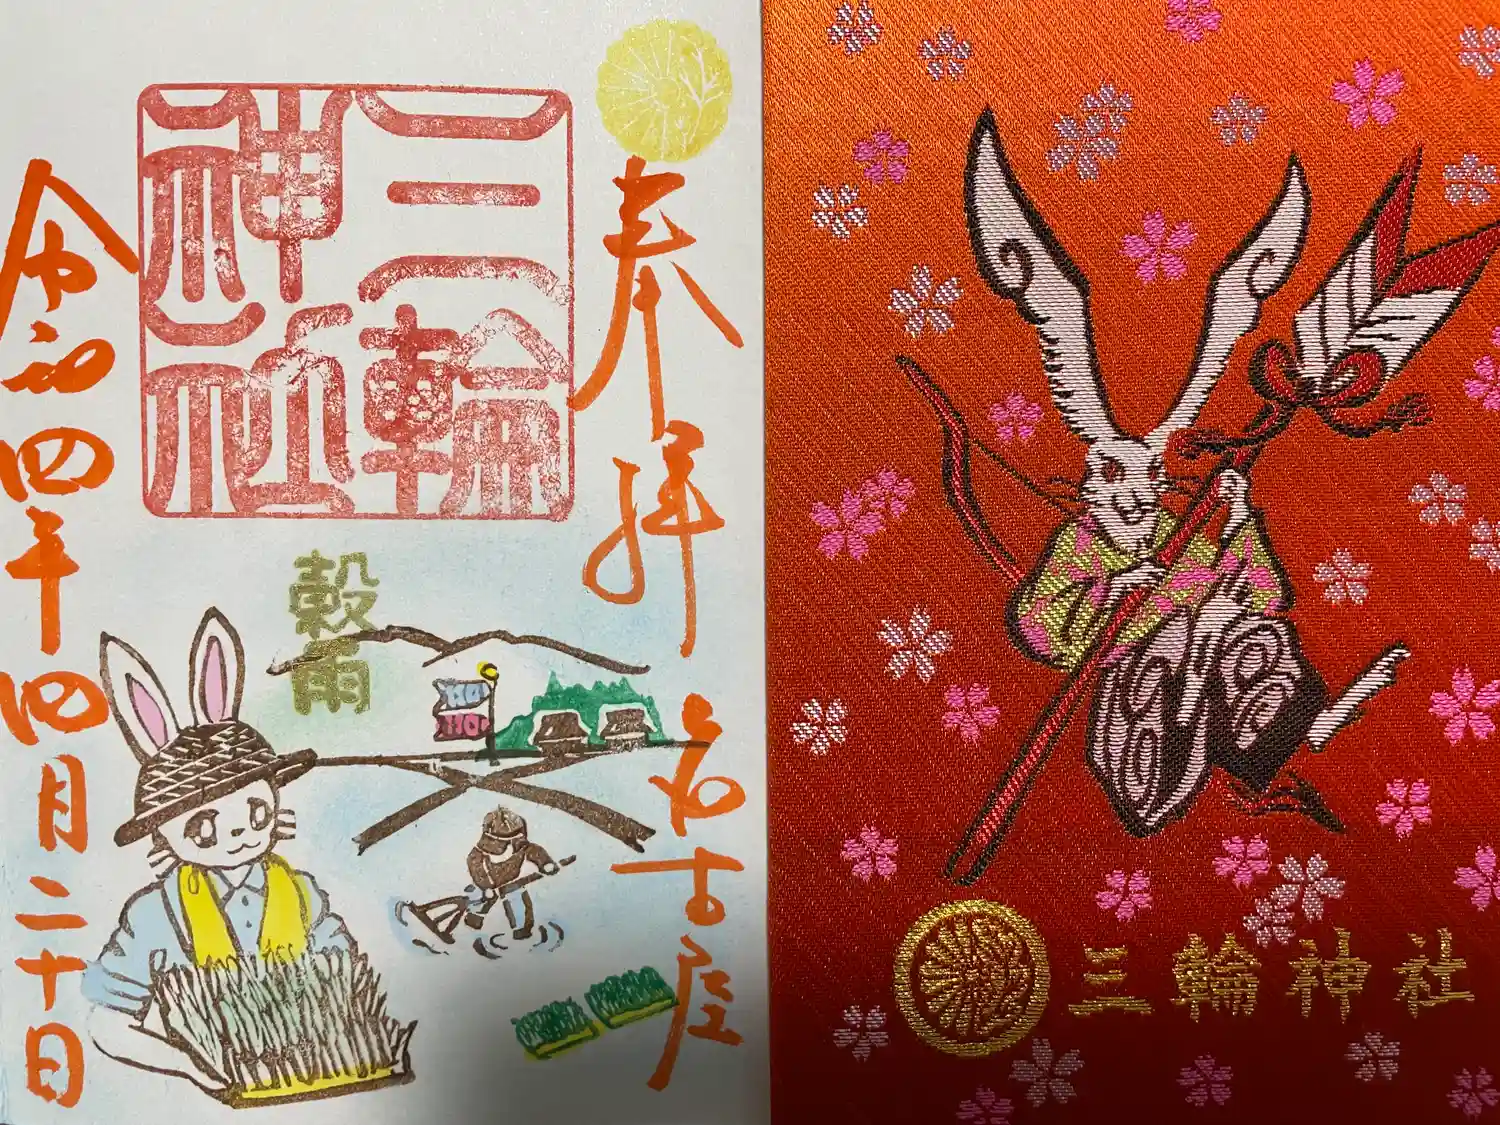 奉拝 名古屋
三輪
神社
穀雨
令和四年四月二十日
三輪神社